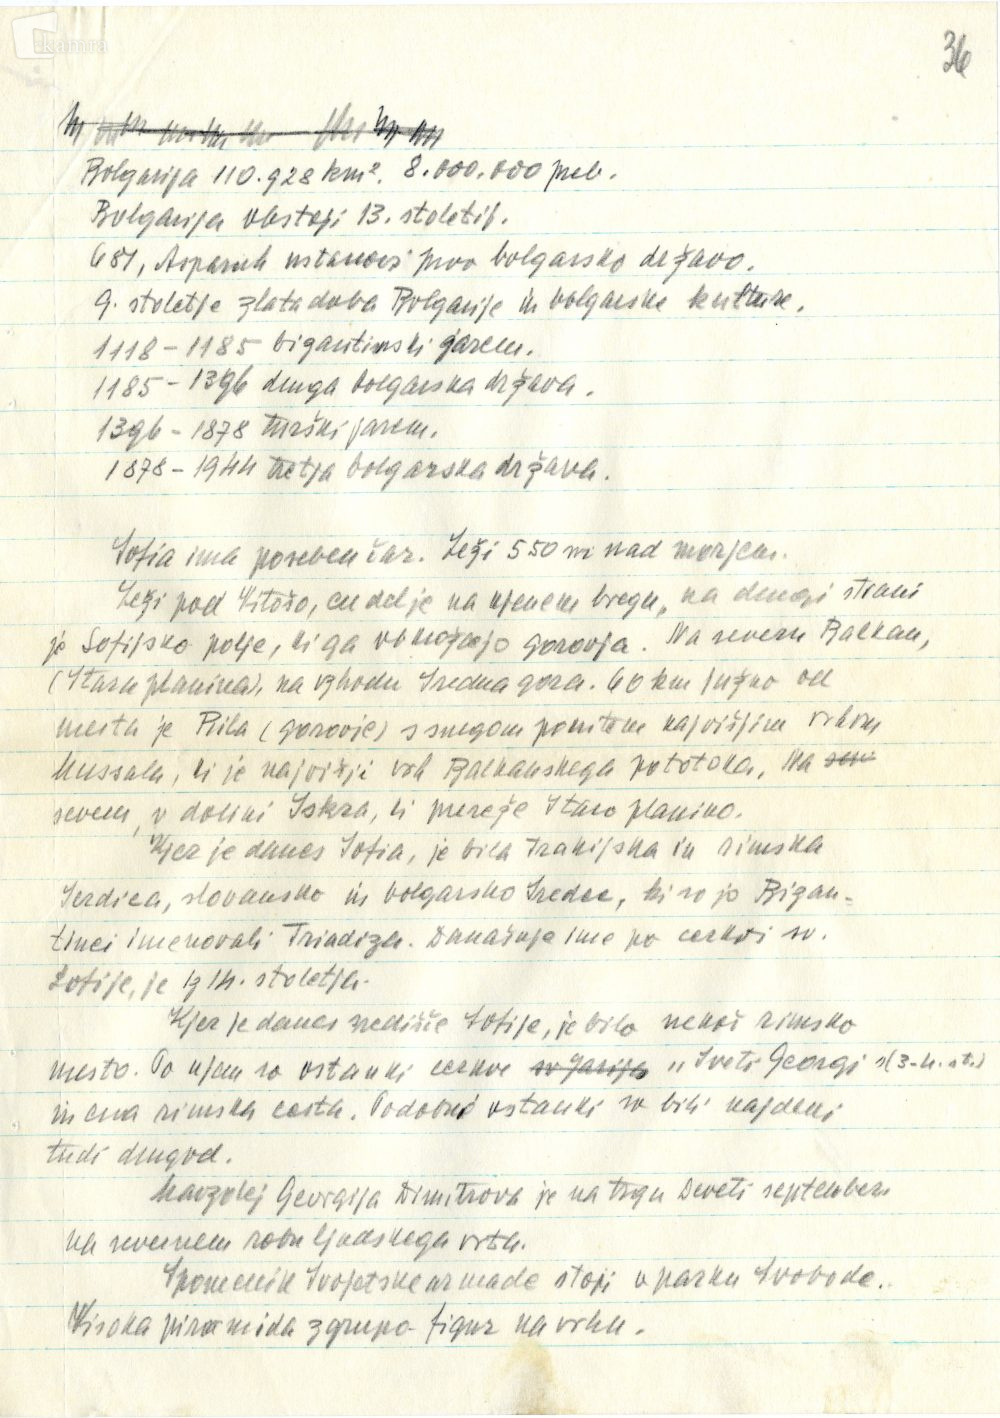 kamra
36
Bolgarija 110.928 km². 8.000.000 preb.
Bolgarija obstoji 13. stoletij.
681, Asparuh ustanovi prvo bolgarsko državo.
9. stoletje zlata doba Bolgarije in bolgarske kulture.
1118 – 1185 bizantinski jarem.
1185 – 1396 druga bolgarska država.
1396 – 1878 turški jarem.
1878 – 1944 tretja bolgarska država.
Sofia ima poseben čar. Leži 550 m nad morjem.
Leži pod Vitošo, en del je na njenem bregu, na drugi strani
je Sofijsko polje, ki ga obkrožajo gorovja. Na severu Balkan,
(Stara planina), na vzhodu Sredna gora. 60 km južno od
mesta je Rila (gorovje) s snegom pokritem najvišjim vrhom
Mussala, ki je najvišji vrh Balkanskega polotoka. Na sev
severu, v dolini Iskra, ki prereže Staro planino.
Kjer je danes Sofia, je bila Trakijska in rimska
Serdica, slovansko in bolgarsko Sredec, ki so jo Bizan-
tinci imenovali Triadiza. Današnje ime po cerkvi sv.
Sofije, je iz 14. stoletja.
Kjer je danes središče Sofije, je bilo nekoč rimsko
mesto. Po njem so ostanki cerkve sv Jurija "Sveti Georgi" (3-4. st.)
in ena rimska cesta. Podobni ostanki so bili najdeni
tudi drugod.
Mavzolej Georgija Dimitrova je na trgu Deveti septembers
na severnem robu ljudskega vrta.
Spomenik Sovjetske armade stoji v parku Svobode.
Visoka piramida z grupo figur na vrhu.